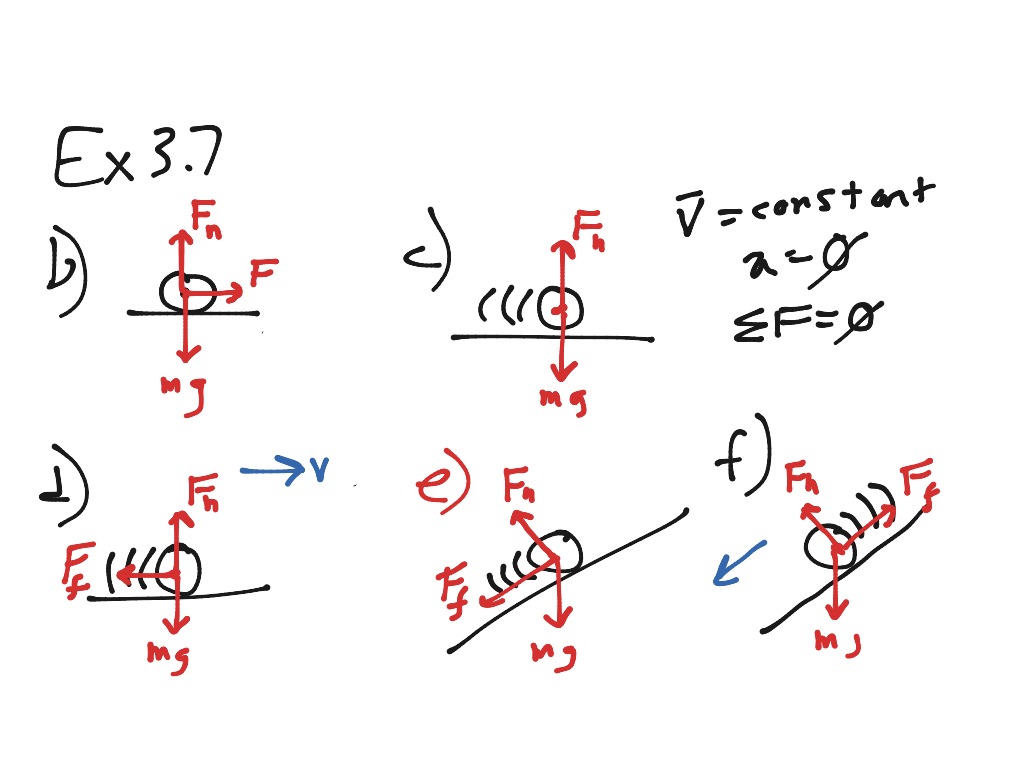 Ex 3.7
b)
Fn
F
mg
c)
Fn
mg
v̄ = constant
a = ∅
ΣF = ∅
d)
v
Fn
Ff
mg
e)
Fn
Ff
mg
f)
Fn
Ff
mg